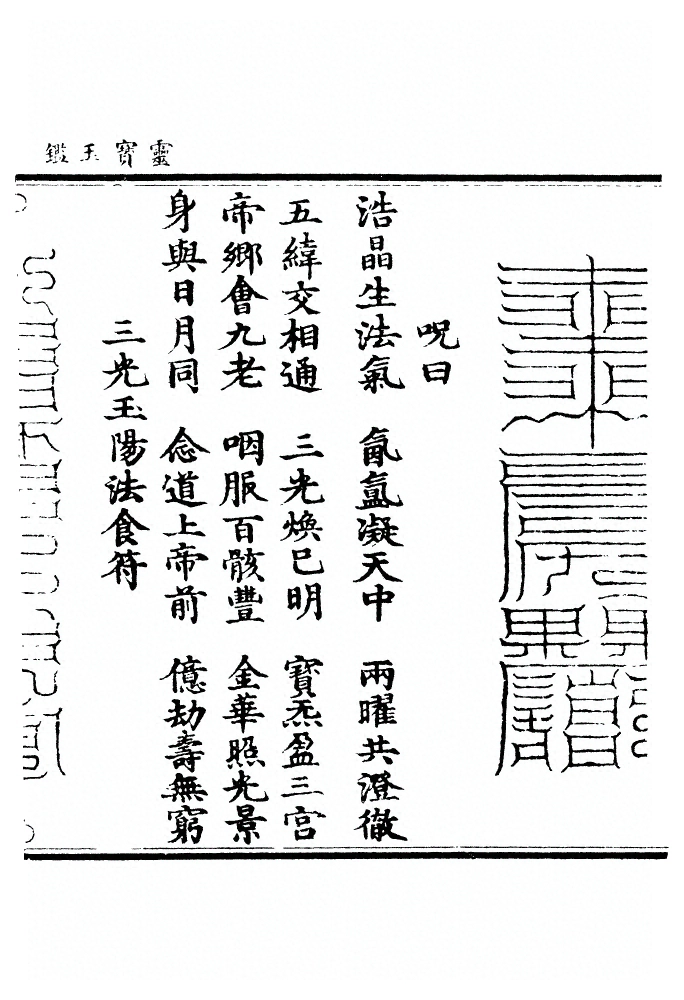 靈寶玉鑑
呪曰
浩晶生法氣 氤氳凝天中 兩曜共澄徹
五緯交相通 三光煥已明 寶炁盈三宮
帝鄉會九老 咽服百骸豐 金華照光景
身與日月同 念道上帝前 億劫壽無窮
三光玉陽法食符